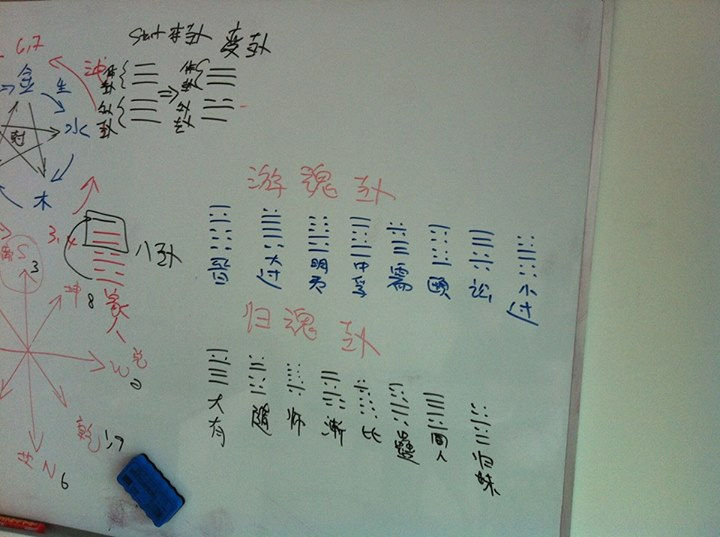 6,7
本卦 变卦
金 生
水
木
体卦 体卦
八卦
家人
游魂卦
晋 大过 明夷 中孚 需 颐 讼 小过
归魂卦
大有 随 师 渐 比 蠱 同人 归妹
S
3
3,4
坤
8
W 兑
乾 1,9
N 6